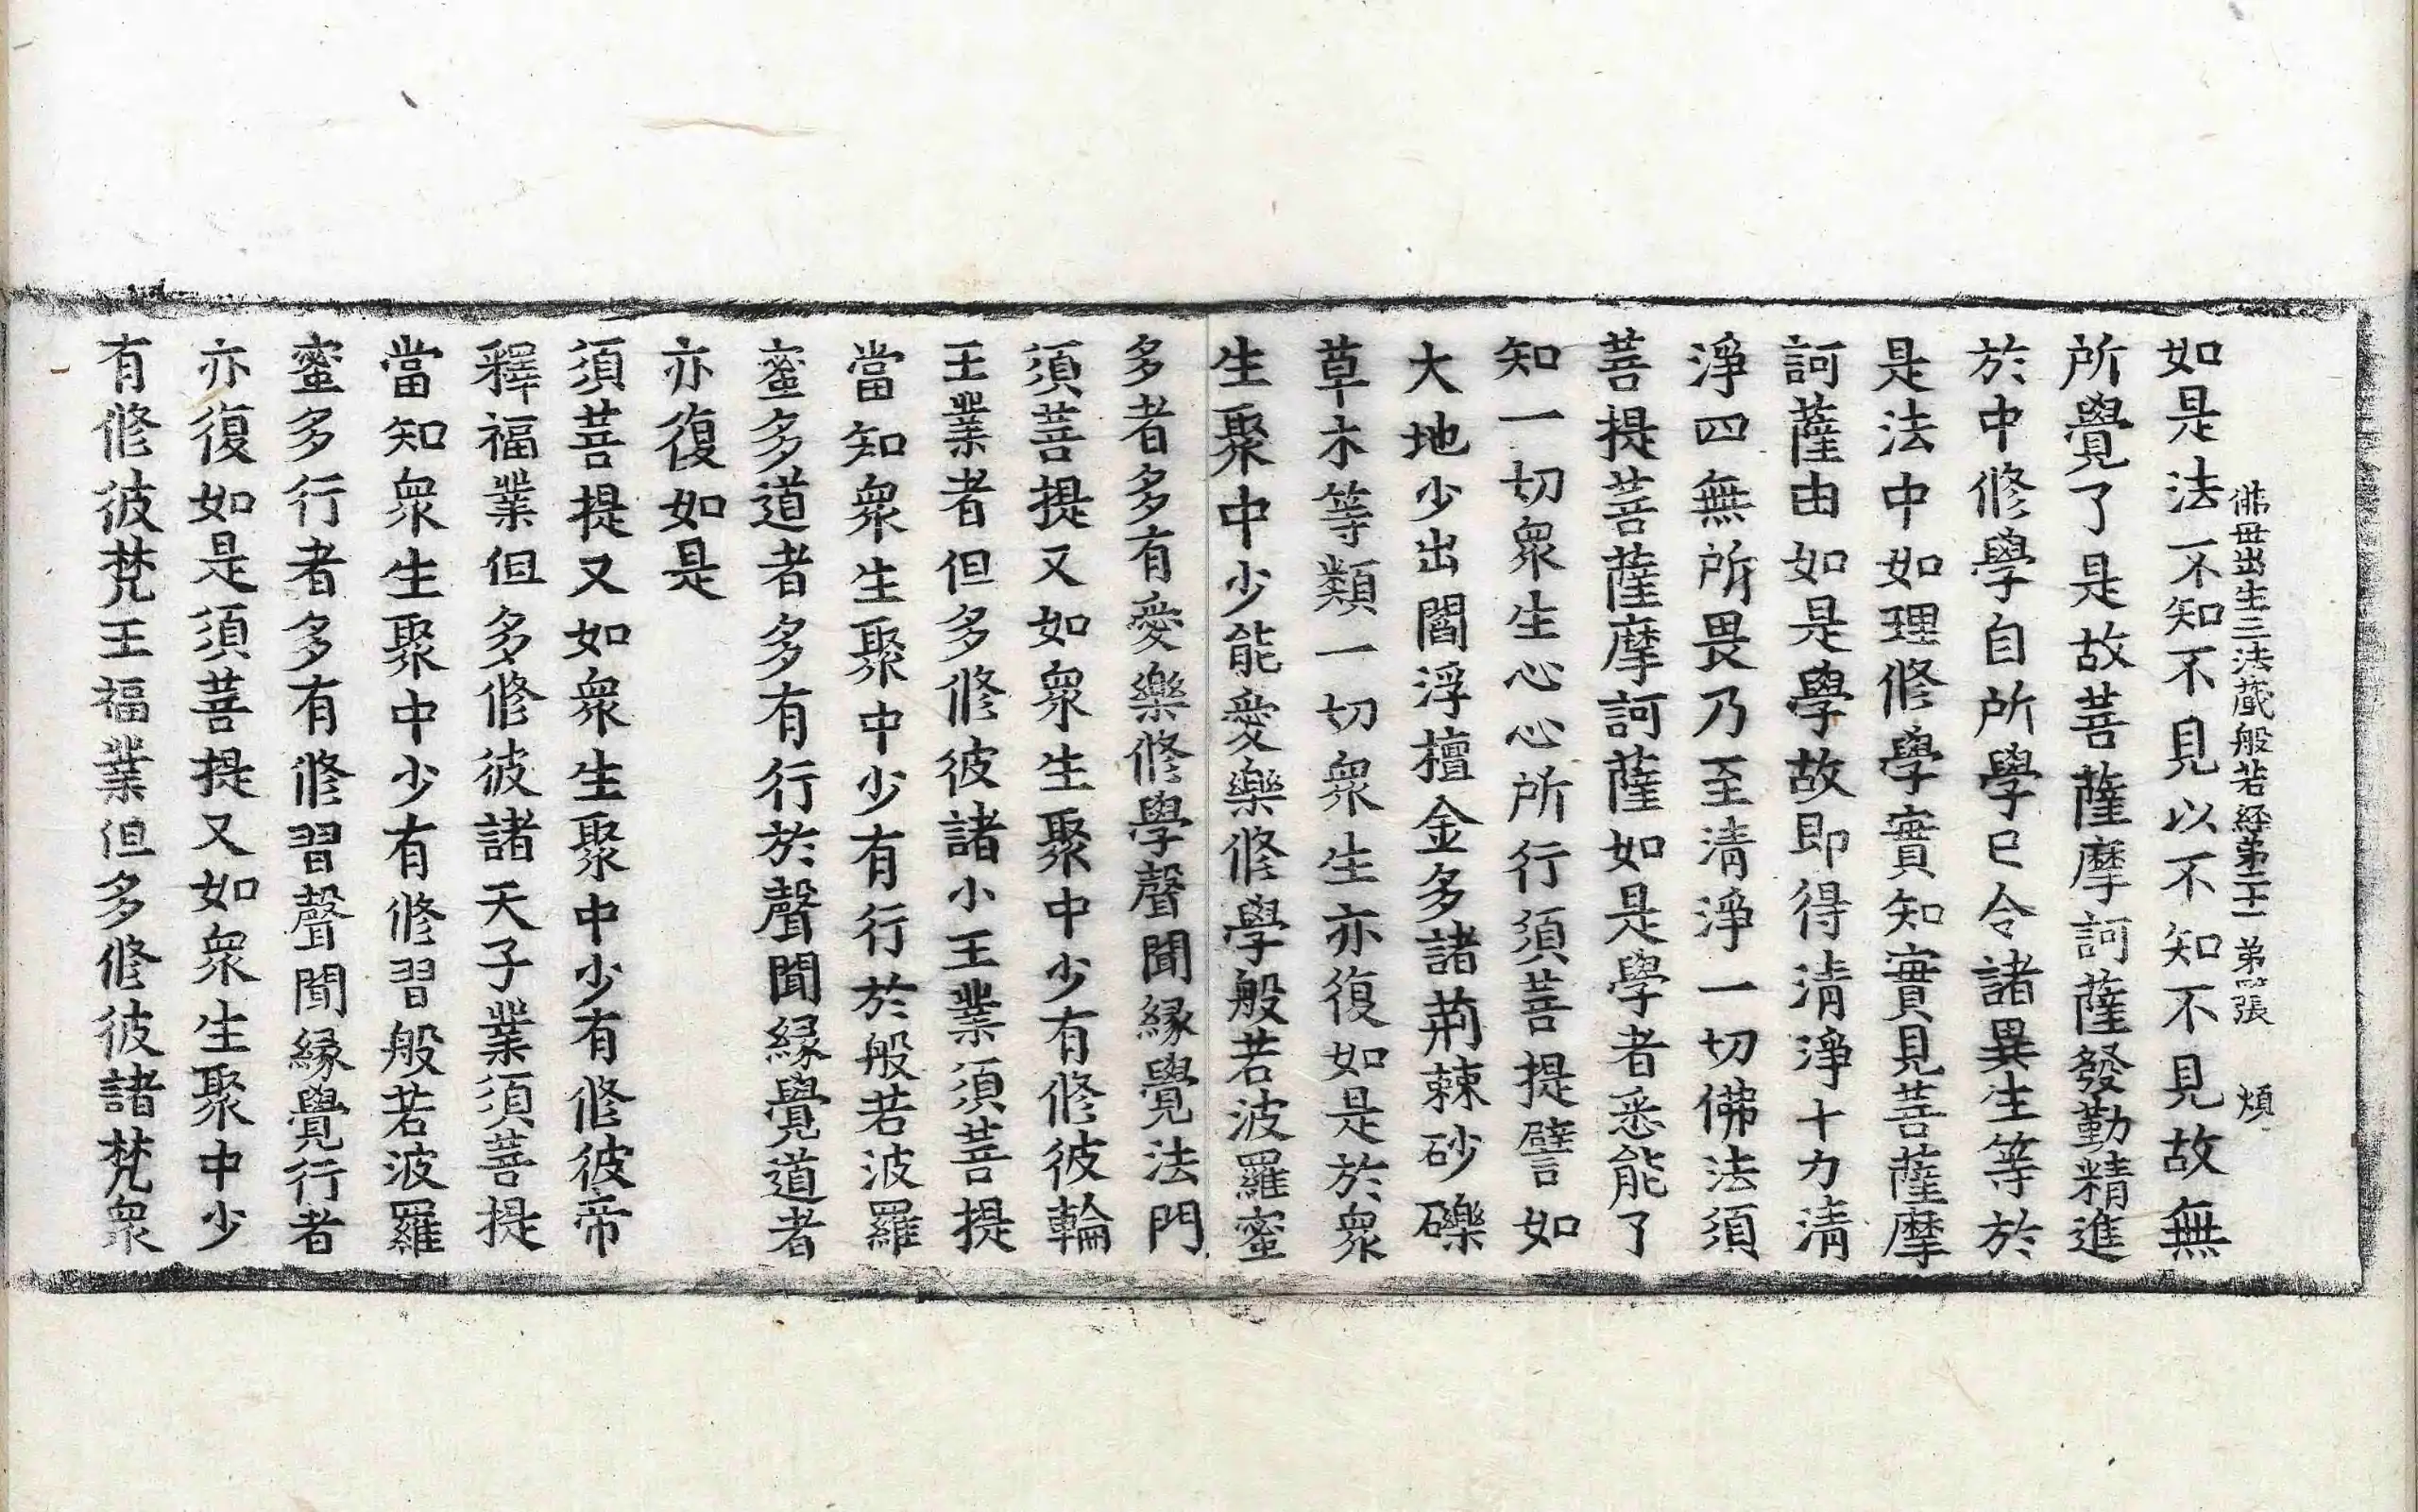 佛毋出生三法蔵般若経苐二十一 苐四張 煩
如是法不知不見以不知不見故無
所覺了是故菩薩摩訶薩發勤精進
於中修學自所學已令諸異生等於
是法中如理修學實知實見菩薩摩
訶薩由如是學故即得清淨十力清
淨四無所畏乃至清淨一切佛法須
菩提菩薩摩訶薩如是學者悉能了
知一切眾生心心所行須菩提譬如
大地少出閻浮檀金多諸荊棘砂礫
草木等類一切眾生亦復如是於眾
生聚中少能愛樂修學般若波羅蜜
多者多有愛樂修學聲聞緣覺法門
須菩提又如眾生聚中少有修彼輪
王業者但多修彼諸小王業須菩提
當知眾生聚中少有行於般若波羅
蜜多道者多有行於聲聞緣覺道者
亦復如是
須菩提又如眾生聚中少有修彼帝
釋福業但多修彼諸天子業須菩提
當知眾生聚中少有修習般若波羅
蜜多行者多有修習聲聞緣覺行者
亦復如是須菩提又如眾生聚中少
有修彼梵王福業但多修彼諸梵眾